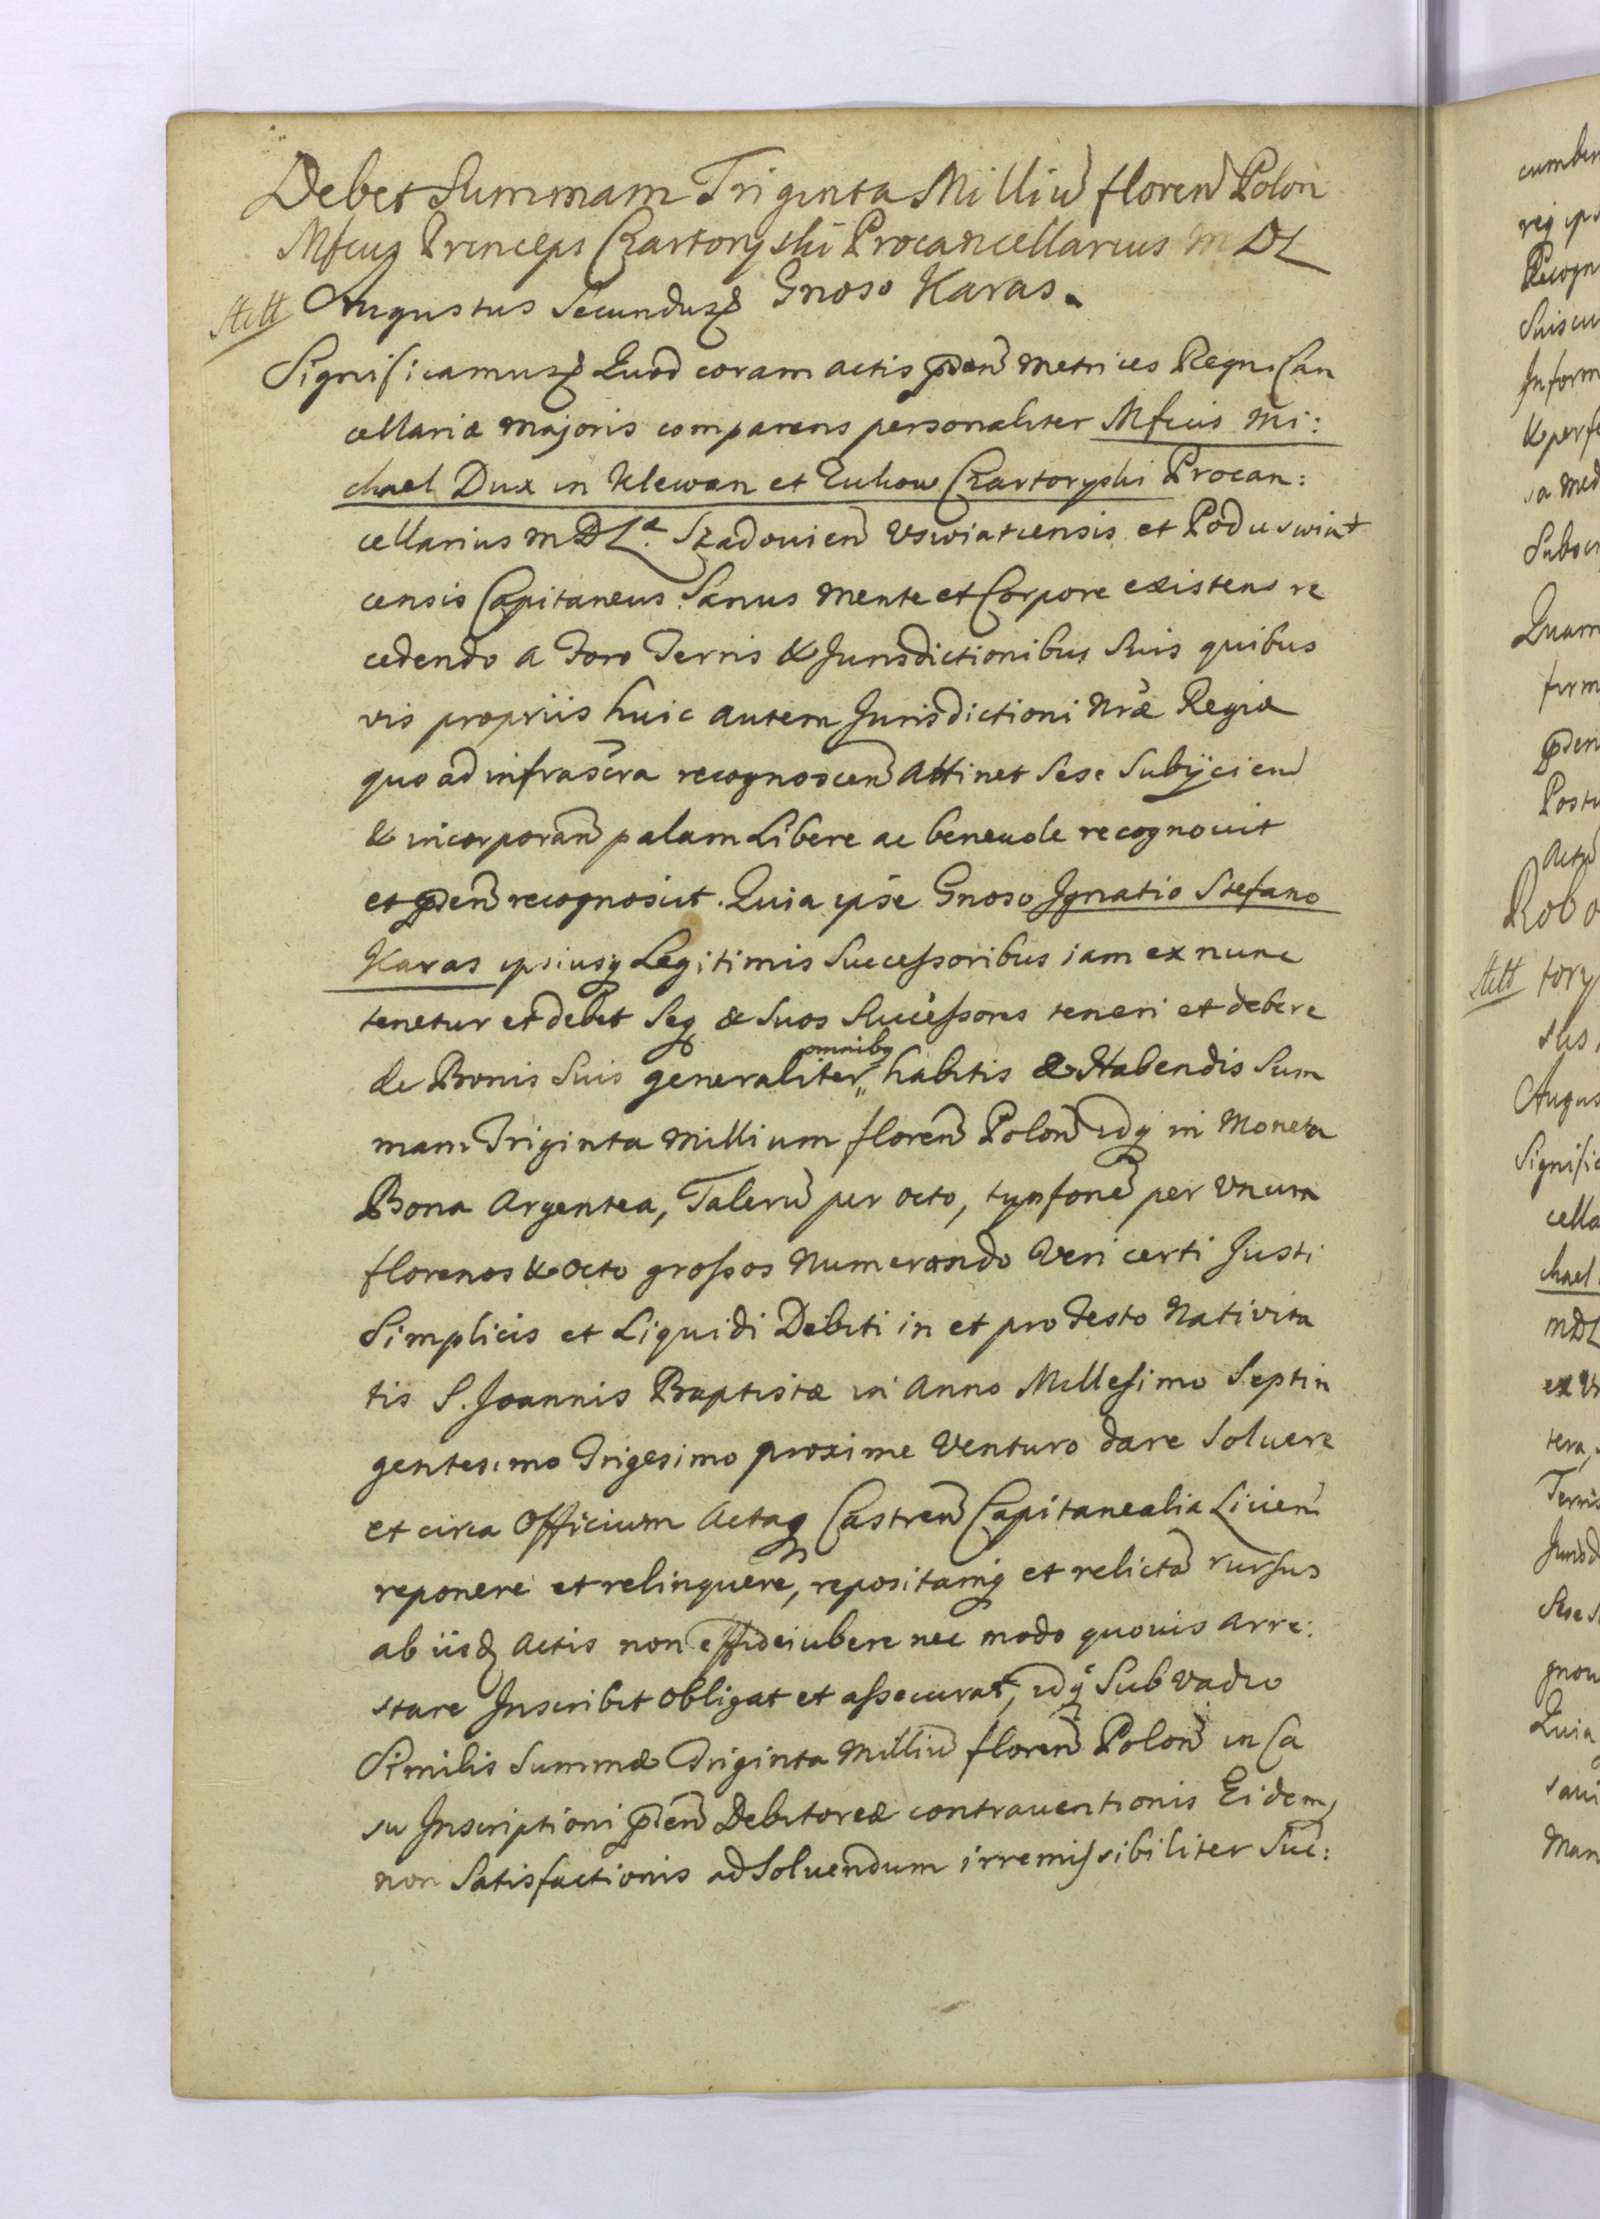 Debet Summam Triginta Milliū florēn Polon
Mfcus Princeps Czartoryski Procancellarius MDL
Gnoso Karas.
Augustus Secundus
Significamus Quod coram actis pñ Metrices Regni Can
cellariæ Majoris comparens personaliter Mfcus Mi:
chael Dux in Klewan et Zukow Czartoryski Procan:
cellarius MDL. Szadouień Uswiatcensis et Poduswiat
censis Capitaneus Sanus Mente et Corpore existens re
cedendo a Foro Terris & Jurisdictionibus Suis quibus
vis propriis huic autem Jurisdictioni Nræ Regiæ
quo ad infrascra recognoscen̄ Attinet Sese Subijcien̄
& incorporan̄ palam Libere ac beneuole recognouit
et pñ recognoscit. Quia ipse Gnoso Ignatio Stefano
Karas ipsiusq Legitimis Successoribus iam ex nunc
tenetur et debet Seq & Suos Successores teneri et debere
de Bonis Suis generaliter omnibq habitis & Habendis Sum
mam Triginta Millium floren̄ Polon̄ idq in Moneta
Bona Argentea, Talerū per octo, tynfonē per Unum
florenos & octo grossos Numerando Veri certi Justi
Simplicis et Liquidi Debiti in et pro Festo Nativita
tis S. Joannis Baptistæ in Anno Millesimo Septin
gentesimo Trigesimo proxime Venturo dare Soluere
et circa Officium Actaq Castren̄ Capitanealia Liuen̄
reponere et relinquere, repositamq et relictā rursus
ab iisd Actis non effideiubere nec modo quouis Arre:
stare Inscribit obligat et assecurat, idq Sub Vadio
Similis Summæ Triginta Milliū floren̄ Polon̄ in Ca
su Inscriptioni pñ Debitoreæ contrauentionis Eidem
non Satisfactionis ad Soluendum irremissibiliter Suc: